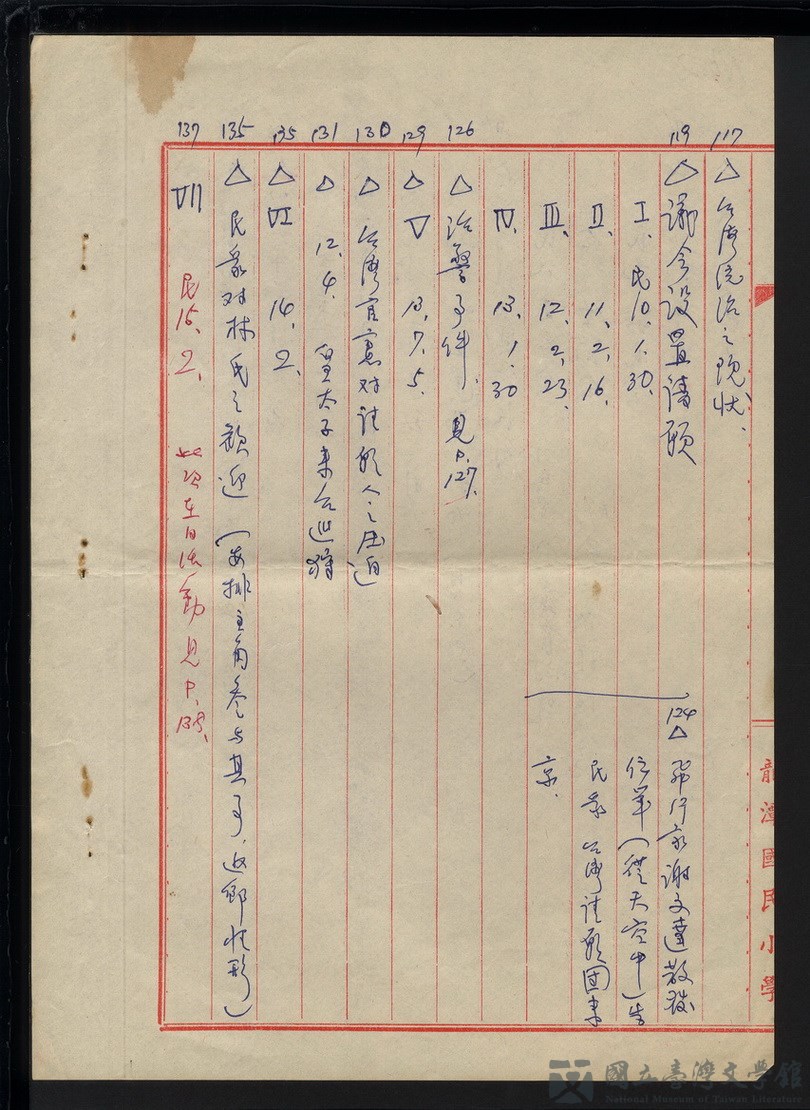 117 △ 台湾统治之現状.
119 △ 議会設置請願
I. 民10. 1. 30.
II. 11. 2. 16.
III. 12. 2. 23.
IV. 13. 1. 30
124 △ 飛行家謝文達散發
传单(從天空中)告
民衆 台湾請願团来
京.
126 △ 治警事件. 見P.127.
129 △ V 13. 7. 5.
130 △ 台湾官憲对請願人之压迫
131 △ 12. 4. 皇太子来台巡狩
135 △ VI 14. 2.
135 △ 民衆对林氏之歡迎 (安排主角参与其事、返鄉情形)
137 VII 民15. 2. 此次在日活動見P.138.
龍潭國民小學
國立臺灣文學館
National Museum of Taiwan Literature